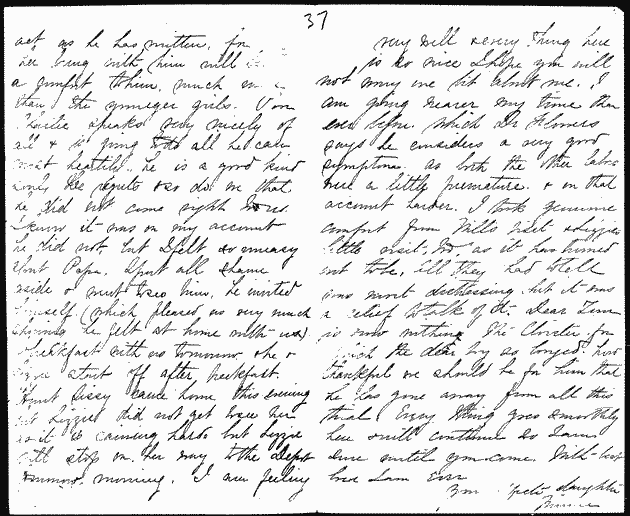 37
act as he has written, for
her being with him will be
a comfort to him, much more
than the younger girls. Von
speaks very nicely of
all & is going to do all he can
most heartily. he is a good kind
he regrets & so do we that
he did not come right to us.
I know it was on my account
he did not, but I felt so uneasy
about Papa. I put all shame
aside & went to see him. he invited
himself (which pleased us very much
showing he felt at home with us)
breakfast with us tomorrow, & he &
start off after breakfast.
Aunt Sissy came home this evening
but Lizzie did not get to see her
as it is raining hard but Lizzie
will stop on her way to the depot
tomorrow morning. I am feeling
very well & every thing here
is so nice I hope you will
not worry one bit about me. I
am going nearer my time than
ever before which Dr Flowers
says he considers a very good
symptom. as both the other babies
were a little premature. & on that
account harder. I took genuine
comfort from Will's visit & Lizzie's
little visit, as it has turned
out to be. all they had to tell
was most distressing. but it was
a relief to talk of it. Dear
is now nothing. The for
which the dear boy so longed. how
thankful we should be for him that
he has gone away from all this
trial. Every thing goes smoothly
here & will continue so I am
sure until you come. With best
love I am ever
Your daughter